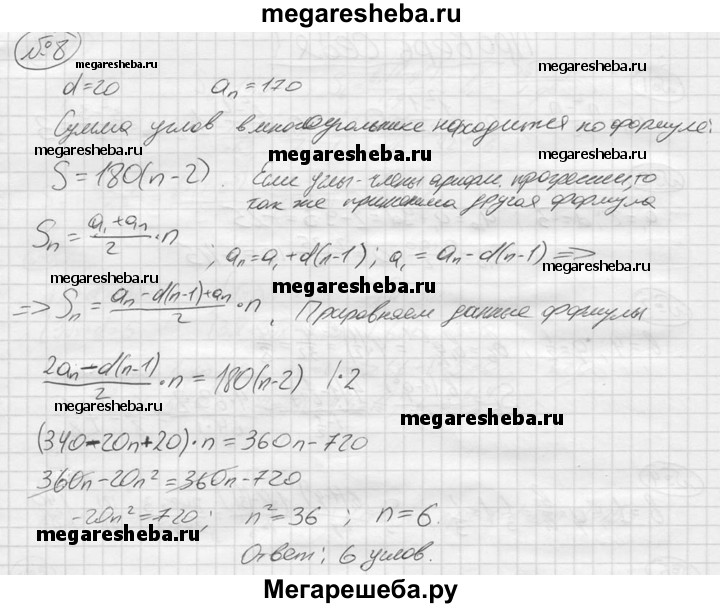 megaresheba.ru
№8
megaresheba.ru
megaresheba.ru
d=20 aₙ=170
Сумма углов в многоугольнике находится по формуле:
megaresheba.ru
megaresheba.ru
S=180(n-2). Если углы-члены арифм. прогрессии, то
так же применима другая формула
Sₙ = (a₁+aₙ)/2 · n ; aₙ=a₁+d(n-1); a₁=aₙ-d(n-1) =>
megaresheba.ru
megaresheba.ru
megaresheba.ru
=> Sₙ = (aₙ-d(n-1)+aₙ)/2 · n. Приравняем данные формулы
(2aₙ-d(n-1))/2 · n = 180(n-2) |·2
megaresheba.ru
megaresheba.ru
(340-20n+20)·n=360n-720
360n-20n²=360n-720
-20n²=720; n²=36; n=6.
megaresheba.ru
megaresheba.ru
Ответ: 6 углов.
Мегарешеба.ру